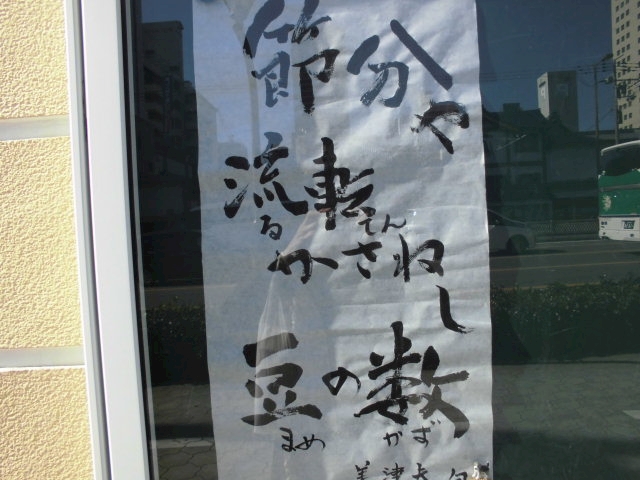 節分や
流転
るてん
かさねし
豆の数
まめ かず
美津